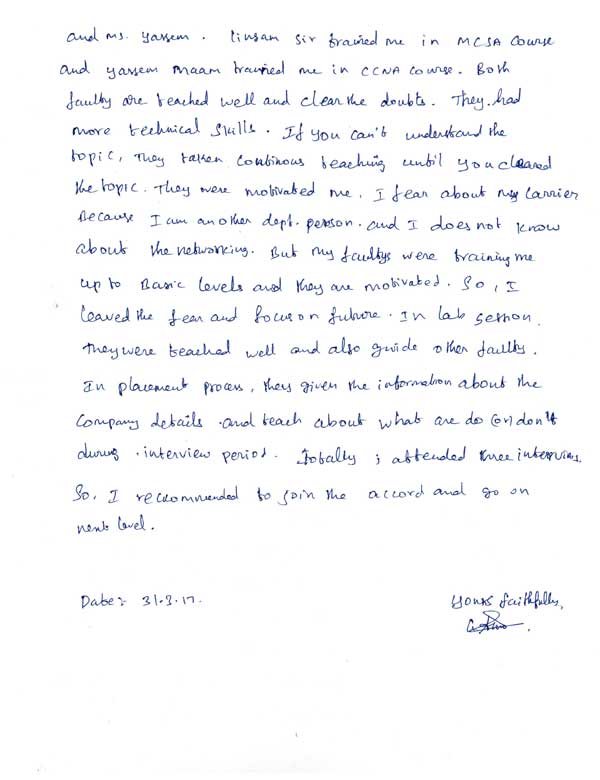 and Ms. Yassem. Linsam Sir trained me in MCSA Course
and Yassem Maam trained me in CCNA Course. Both
faulty are teached well and clear the doubts. They had
more technical skills. If you can't understand the
topic, They taken continous teaching until you cleared
the topic. They were motivated me. I fear about my carrier
Because I am another dept. person. and I does not know
about the networking. But my faultys were training me
up to Basic levels and they are motivated. So, I
leaved the fear and focus on future. In lab session.
They were teached well and also guide other faulty.
In placement process, they given the information about the
Company details and teach about what are do (or) don't
during interview period. Totally i attended three interviews.
So, I recommended to join the accord and go on
next level.
Date:- 31.3.17.
Yours faithfully,